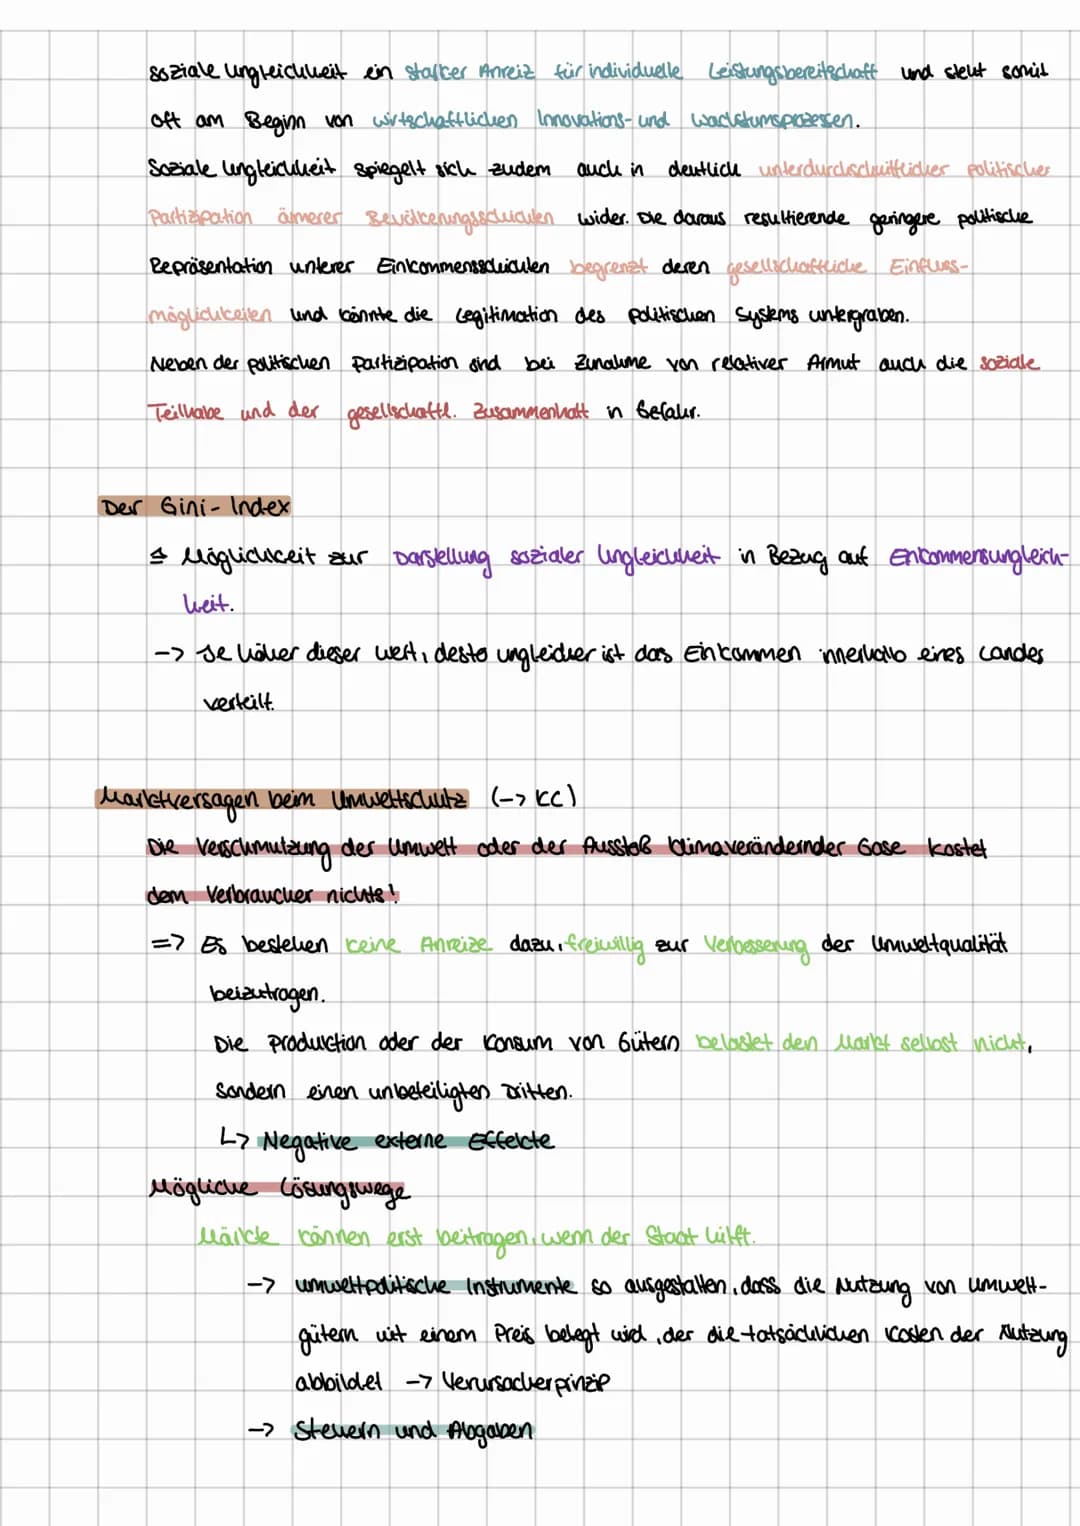 soziale Ungleichheit ein starker Anreiz für individuelle Leistungsbereitschaft und steht somit
oft am Beginn von wirtschaftlichen Innovations- und Wachstumsprozessen.
Soziale Ungleichheit spiegelt sich zudem auch in deutlich unterdurchschnittlicher politischer
Partizipation ärmerer Bevölkerungsschichten wider. Die daraus resultierende geringere politische
Repräsentation unterer Einkommensschichten begrenzt deren gesellschaftliche Einfluss-
möglichkeiten und könnte die Legitimation des politischen Systems untergraben.
Neben der politischen Partizipation sind bei Zunahme von relativer Armut auch die soziale
Teilhabe und der gesellschaftl. Zusammenhalt in Gefahr.
Der Gini-Index
≙ Möglichkeit zur Darstellung sozialer Ungleichheit in Bezug auf Enkommensungleich-
heit.
-> Je höher dieser Wert, desto ungleicher ist das Einkommen innerhalb eines Landes
verteilt.
Marktversagen beim Umweltschutz (-> KC)
Die Verschmutzung der Umwelt oder der Ausstoß klimaverändernder Gase kostet
dem Verbraucher nichts!
=> Es bestehen keine Anreize dazu, freiwillig zur Verbesserung der Umweltqualität
beizutragen.
Die Produktion oder der Konsum von Gütern belastet den Markt selbst nicht,
sondern einen unbeteiligten Dritten.
↳ Negative externe Effekte
Mögliche Lösungswege
Märkte können erst beitragen, wenn der Staat hilft.
-> umweltpolitische Instrumente so ausgestalten, dass die Nutzung von Umwelt-
gütern mit einem Preis belegt wird, der die tatsächlichen Kosten der Nutzung
abbildet -> Verursacherprinzip
-> Steuern und Abgaben